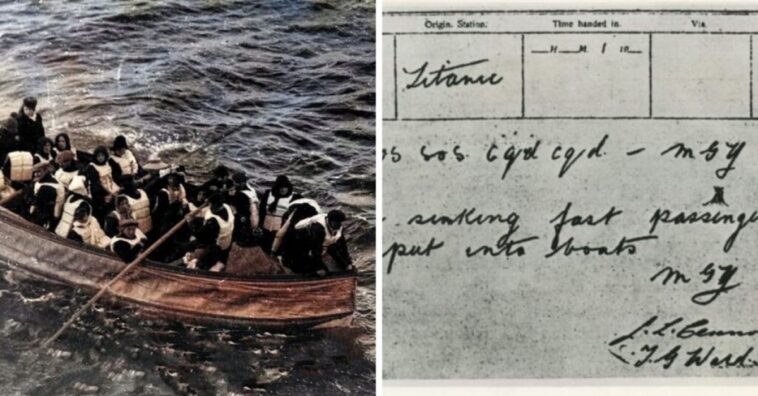 Origin. Station. Time handed in. Via.
Titanic H M
os sos cqd cqd - MGY
sinking fast passenge
put into boats
MGY
T G Ward